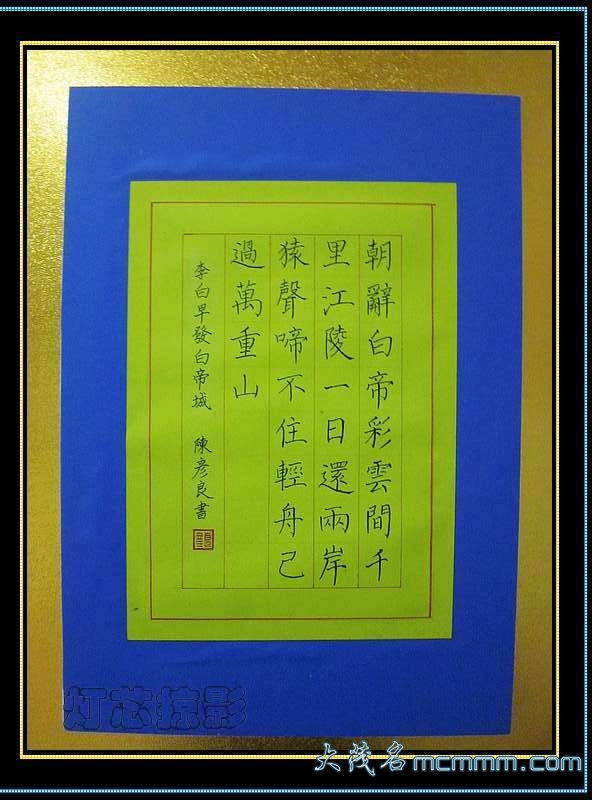 朝辭白帝彩雲間千
里江陵一日還兩岸
猿聲啼不住輕舟已
過萬重山
李白早發白帝城 陳彥良書
灯芯掠影
大茂名mcmmm.com